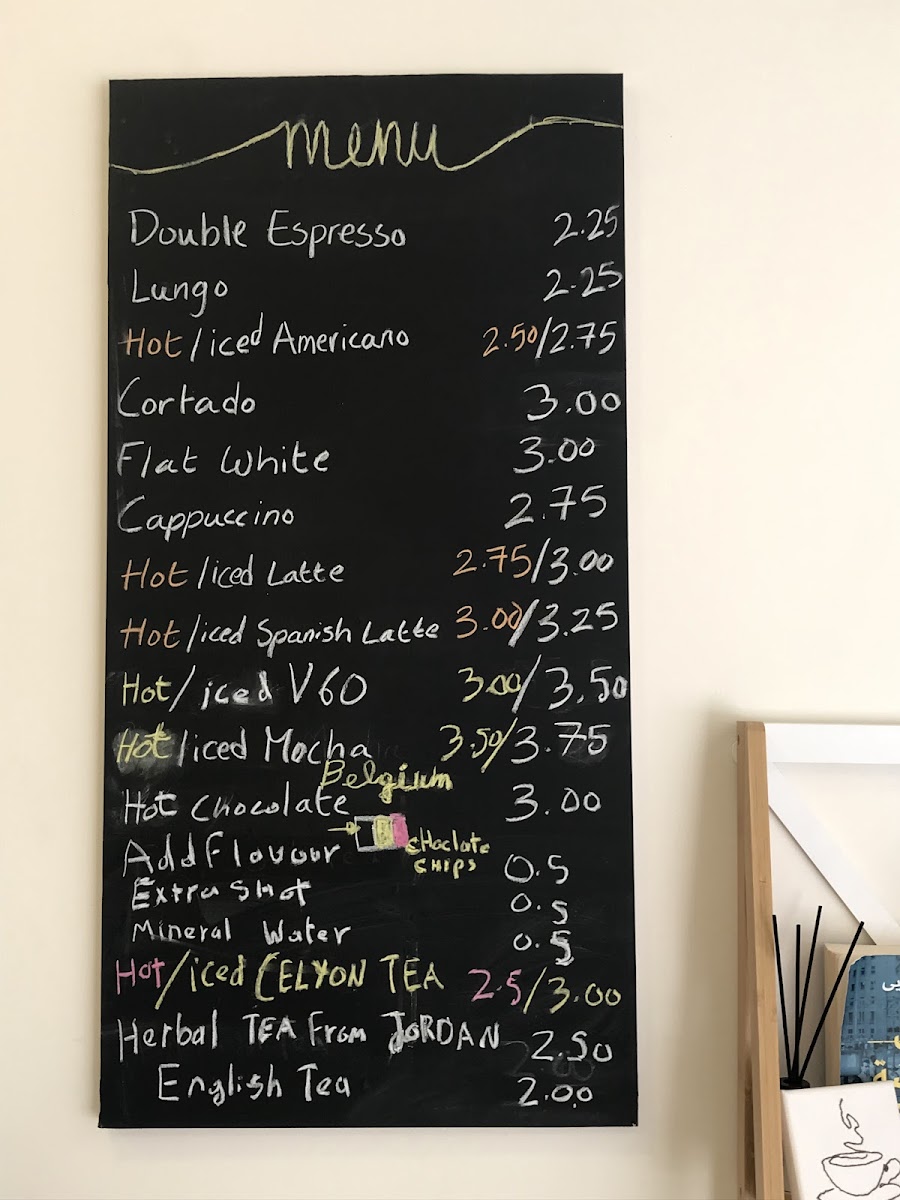 menu
Double Espresso 2.25
Lungo 2.25
Hot/iced Americano 2.50/2.75
Cortado 3.00
Flat White 3.00
Cappuccino 2.75
Hot/iced Latte 2.75/3.00
Hot/iced Spanish Latte 3.00/3.25
Hot/iced V60 3.00/3.50
Hot/iced Mocha 3.50/3.75
Belgium
Hot chocolate 3.00
Add flavour 0.5
CHaclate
CHIPS
Extra shot 0.5
Mineral Water 0.5
Hot/iced CELYON TEA 2.5/3.00
Herbal TEA From JORDAN 2.50
English Tea 2.00